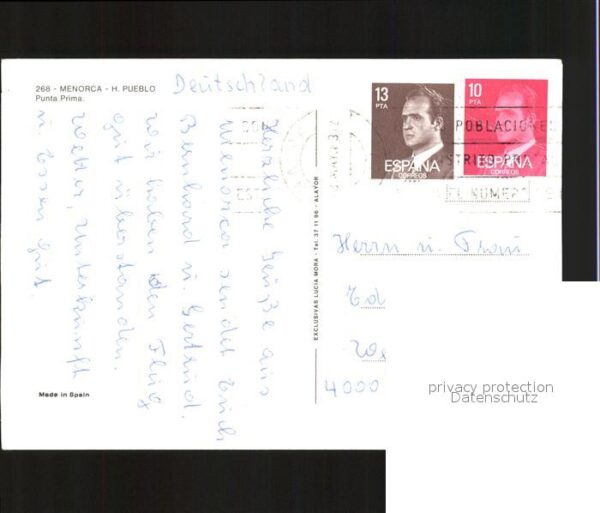 268 - MENORCA - H. PUEBLO
Punta Prima.
Deutschland
Herzliche Grüße aus
Menorca sendet Euch
Bernhard u. Gertrud.
Wir haben den Flug
gut überstanden.
Wetter, Unterkunft
u. Essen gut.
Made in Spain
EXCLUSIVAS LUCIA MORA - Tel. 37 11 96 - ALAYOR
13
PTA
ESPAÑA
CORREOS
10
PTA
ESPAÑA
CORREOS
POBLACION
DISTRITO POSTAL
EL NUMERO
Herrn u. Frau
Ed
4000
privacy protection
Datenschutz